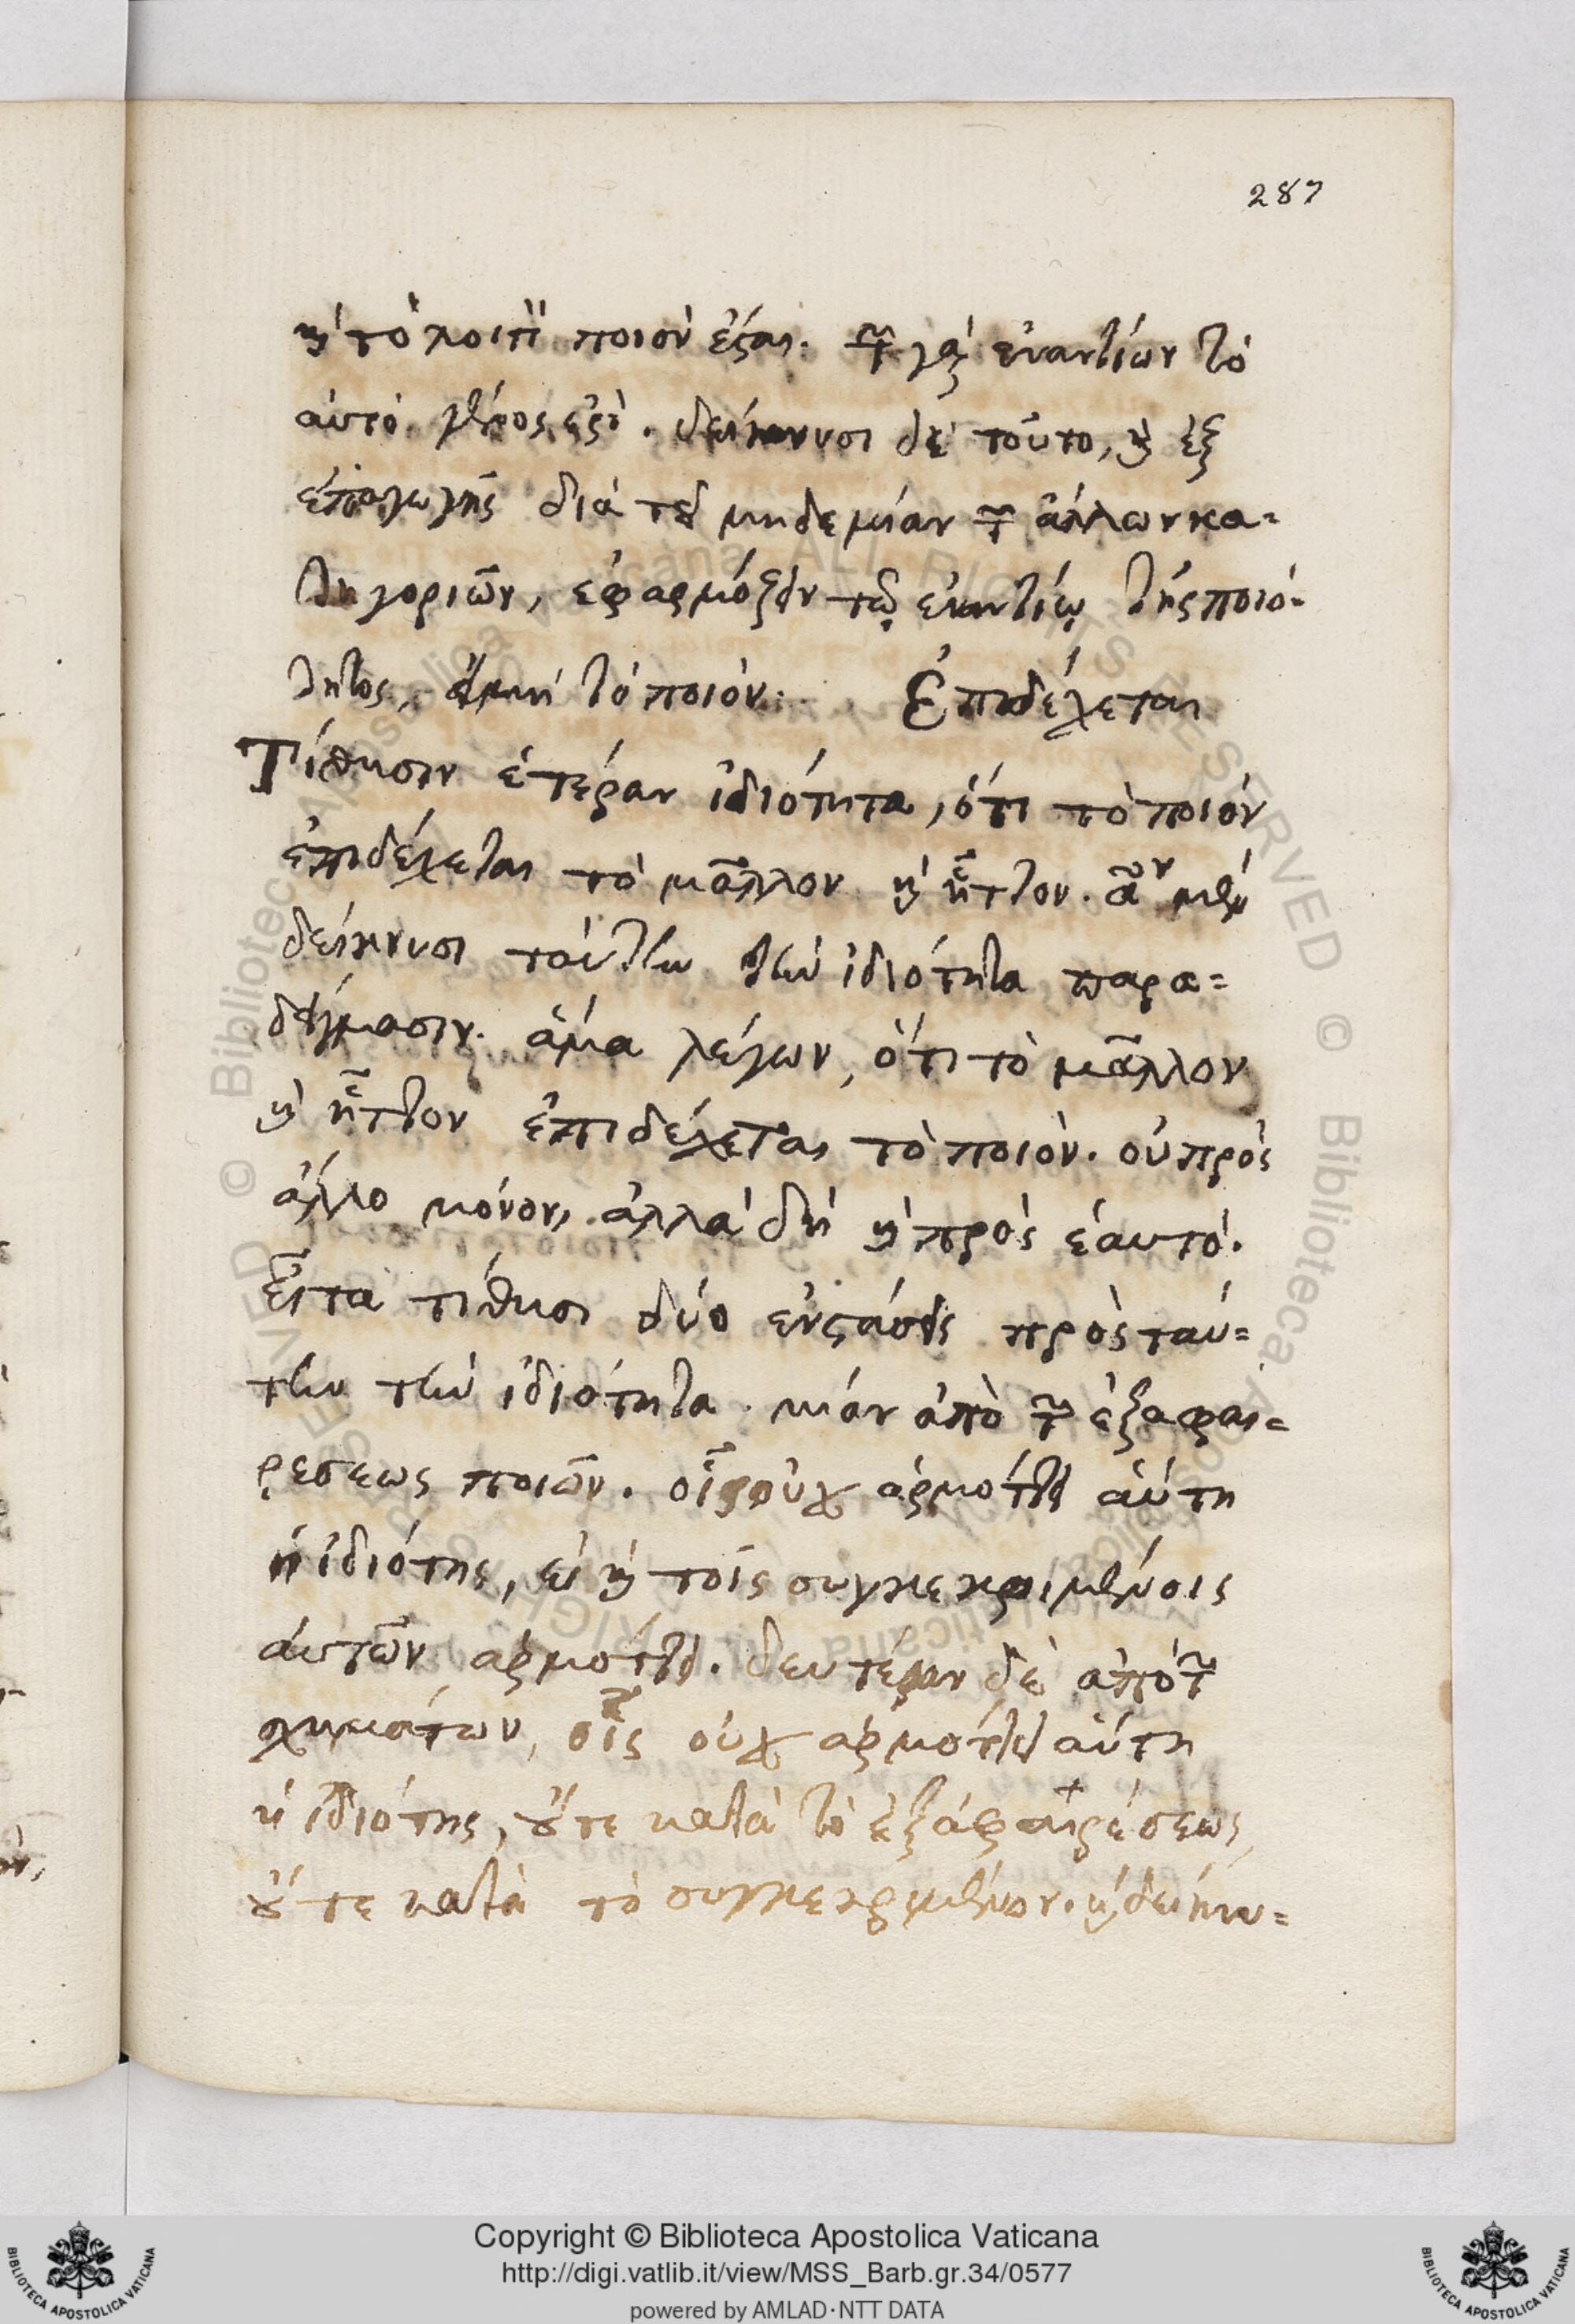 287
καὶ τὸ λοιπὸν ποιὸν ἔσται. τῶν γὰρ ἐναντίων τὸ
αὐτὸ γένος ἐστὶ. δείκνυσι δὲ τοῦτο, καὶ ἐξ
ἐπαγωγῆς διὰ τοῦ μηδεμίαν τῶν ἄλλων κα=
τηγοριῶν, ἐφαρμόζειν τῷ ἐναντίῳ τῆς ποιό-
τητος, εἰ μὴ τὸ ποιόν. Ἐπιδέχεται
Τίθησιν ἑτέραν ἰδιότητα, ὅτι τὸ ποιὸν
ἐπιδέχεται τὸ μᾶλλον καὶ ἧττον. μὲν
δείκνυσι ταύτην τὴν ἰδιότητα παρα=
δείγμασιν. ἅμα λέγων, ὅτι τὸ μᾶλλον
καὶ ἧττον ἐπιδέχεται τὸ ποιὸν. οὐ πρὸς
ἄλλο μόνον, ἀλλὰ δὴ καὶ πρὸς ἑαυτό.
εἶτα τίθησι δύο ἐνστάσεις πρὸς ταύ=
την τὴν ἰδιότητα. μίαν ἀπὸ τῶν ἐξ ἀφαι=
ρεσεως ποιῶν. οἷς οὐχ ἁρμόττει αὕτη
ἡ ἰδιότης, εἰ καὶ τοῖς συγκεκριμένοις
αὐτῶν ἁρμόττει. δευτέραν δὲ ἀπὸ τῶν
σχημάτων, οἷς οὐχ ἁρμόττει αὕτη
ἡ ἰδιότης, οὔτε κατὰ τὸ ἐξ ἀφαιρέσεως,
οὔτε κατὰ τὸ συγκεκριμένον. καὶ δείκνυ=
Copyright © Biblioteca Apostolica Vaticana
http://digi.vatlib.it/view/MSS_Barb.gr.34/0577
powered by AMLAD·NTT DATA